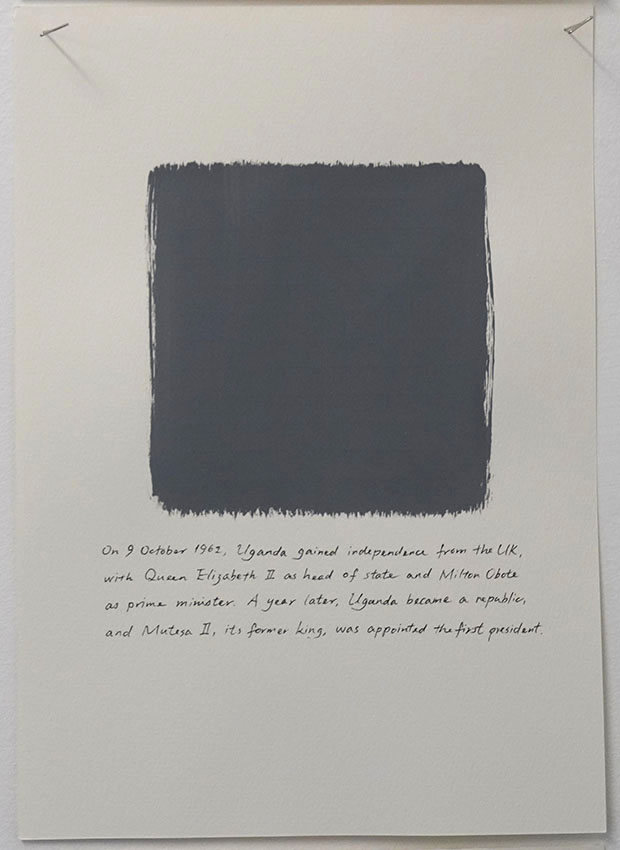 On 9 October 1962, Uganda gained independence from the UK,
with Queen Elizabeth II as head of state and Milton Obote
as prime minister. A year later, Uganda became a republic,
and Mutesa II, its former king, was appointed the first president.